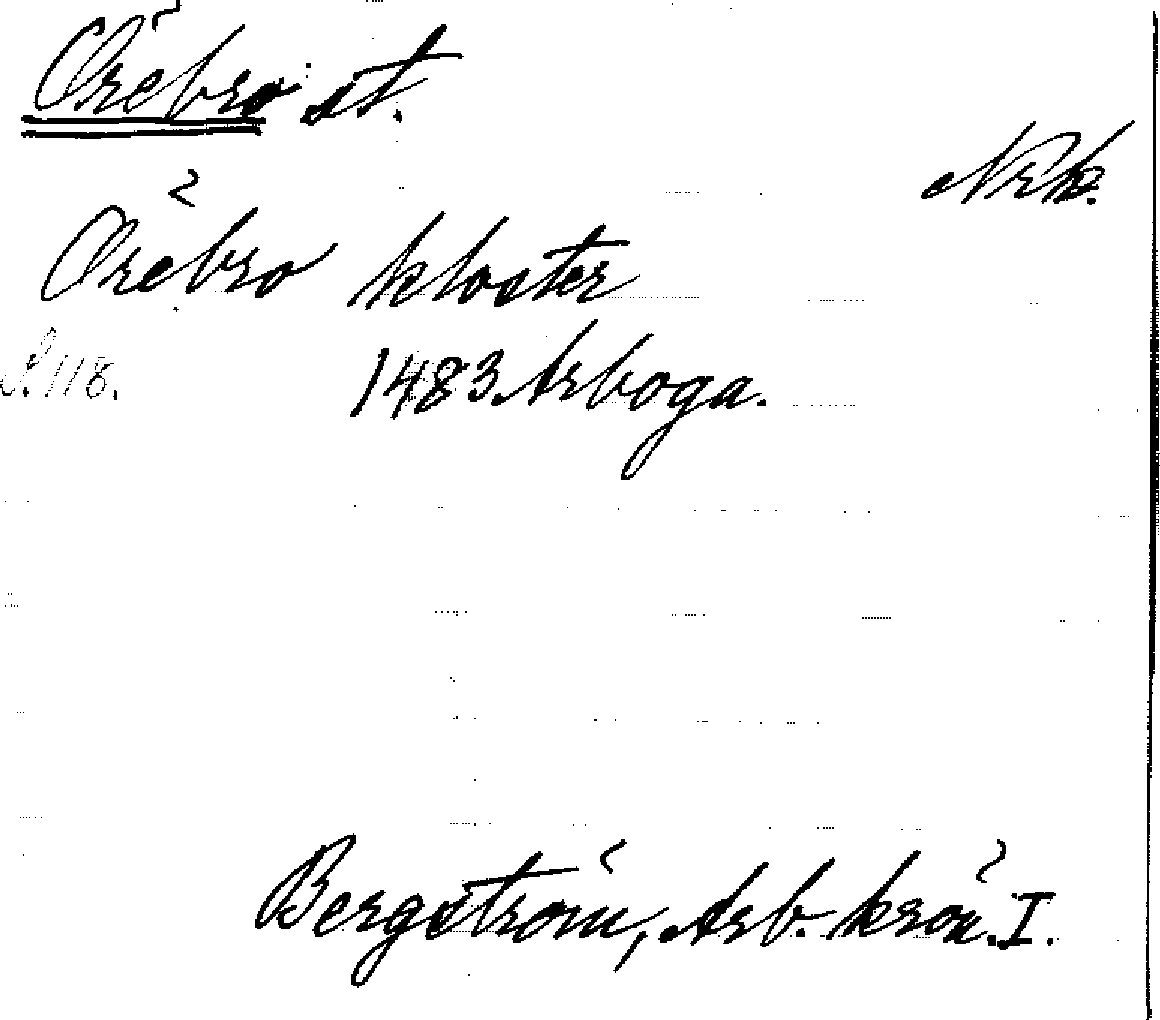 Örebro st.
Nrk.
Örebro kloster
S. 118. 1483. Arboga.
Bergström, Arb. krön. I.